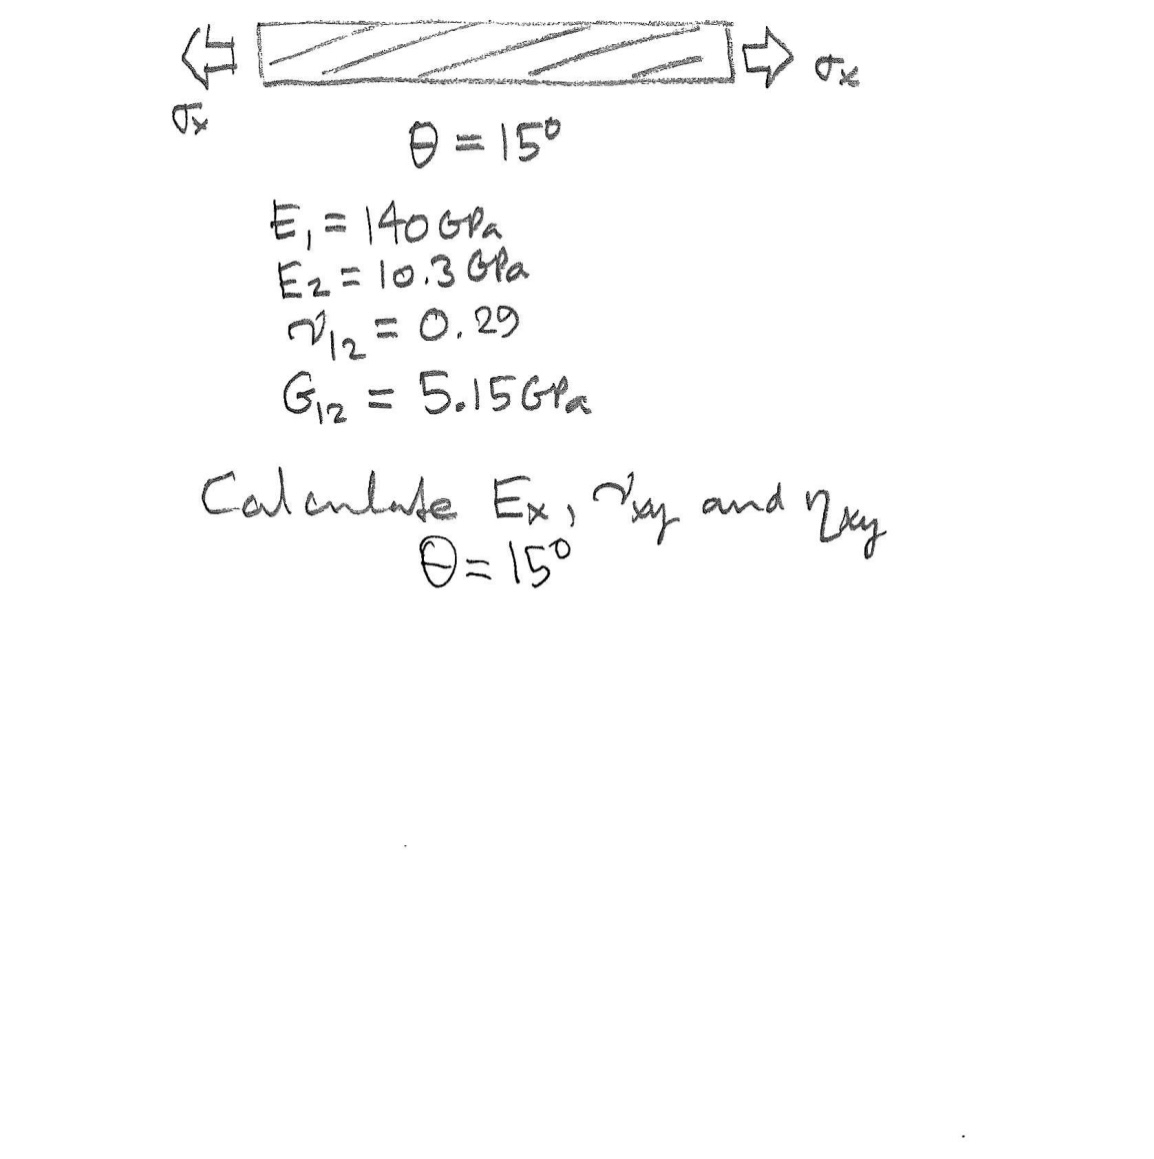 σx
σx
θ = 15°
E₁ = 140 GPa
E₂ = 10.3 GPa
ν₁₂ = 0.29
G₁₂ = 5.15 GPa
Calculate Ex, νxy and ηxy
θ = 15°